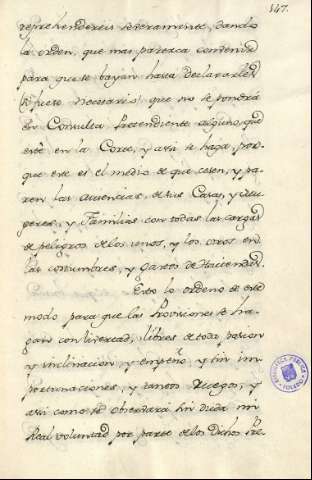 147.
reprehendereis severamente, dando
la orden, que mas paresca conveniente
para que se bayan hasta declararles
si fuere necesario que no se pondrá
en Consulta Pretendiente alguno, que
esté en la Corte, y assi se haga, por-
que este es el medio de que cesen, y pa-
ren las ausencias de sus Casas, y Mu-
geres, y Familias con todas las cargas
de peligros de los unos, y los otros en
las costumbres, y gastos de Haciendas.
Esto lo ordeno de este
modo para que las Provisiones se ha-
gan con livertad, libres de toda pasion
y inclinacion y empeño, y sin im-
portunaciones, y tantos Ruegos, y
assi como se observará sin duda mi
Real voluntad por parte de los Dichos Pre-
BIBLIOTECA PUBLICA
TOLEDO